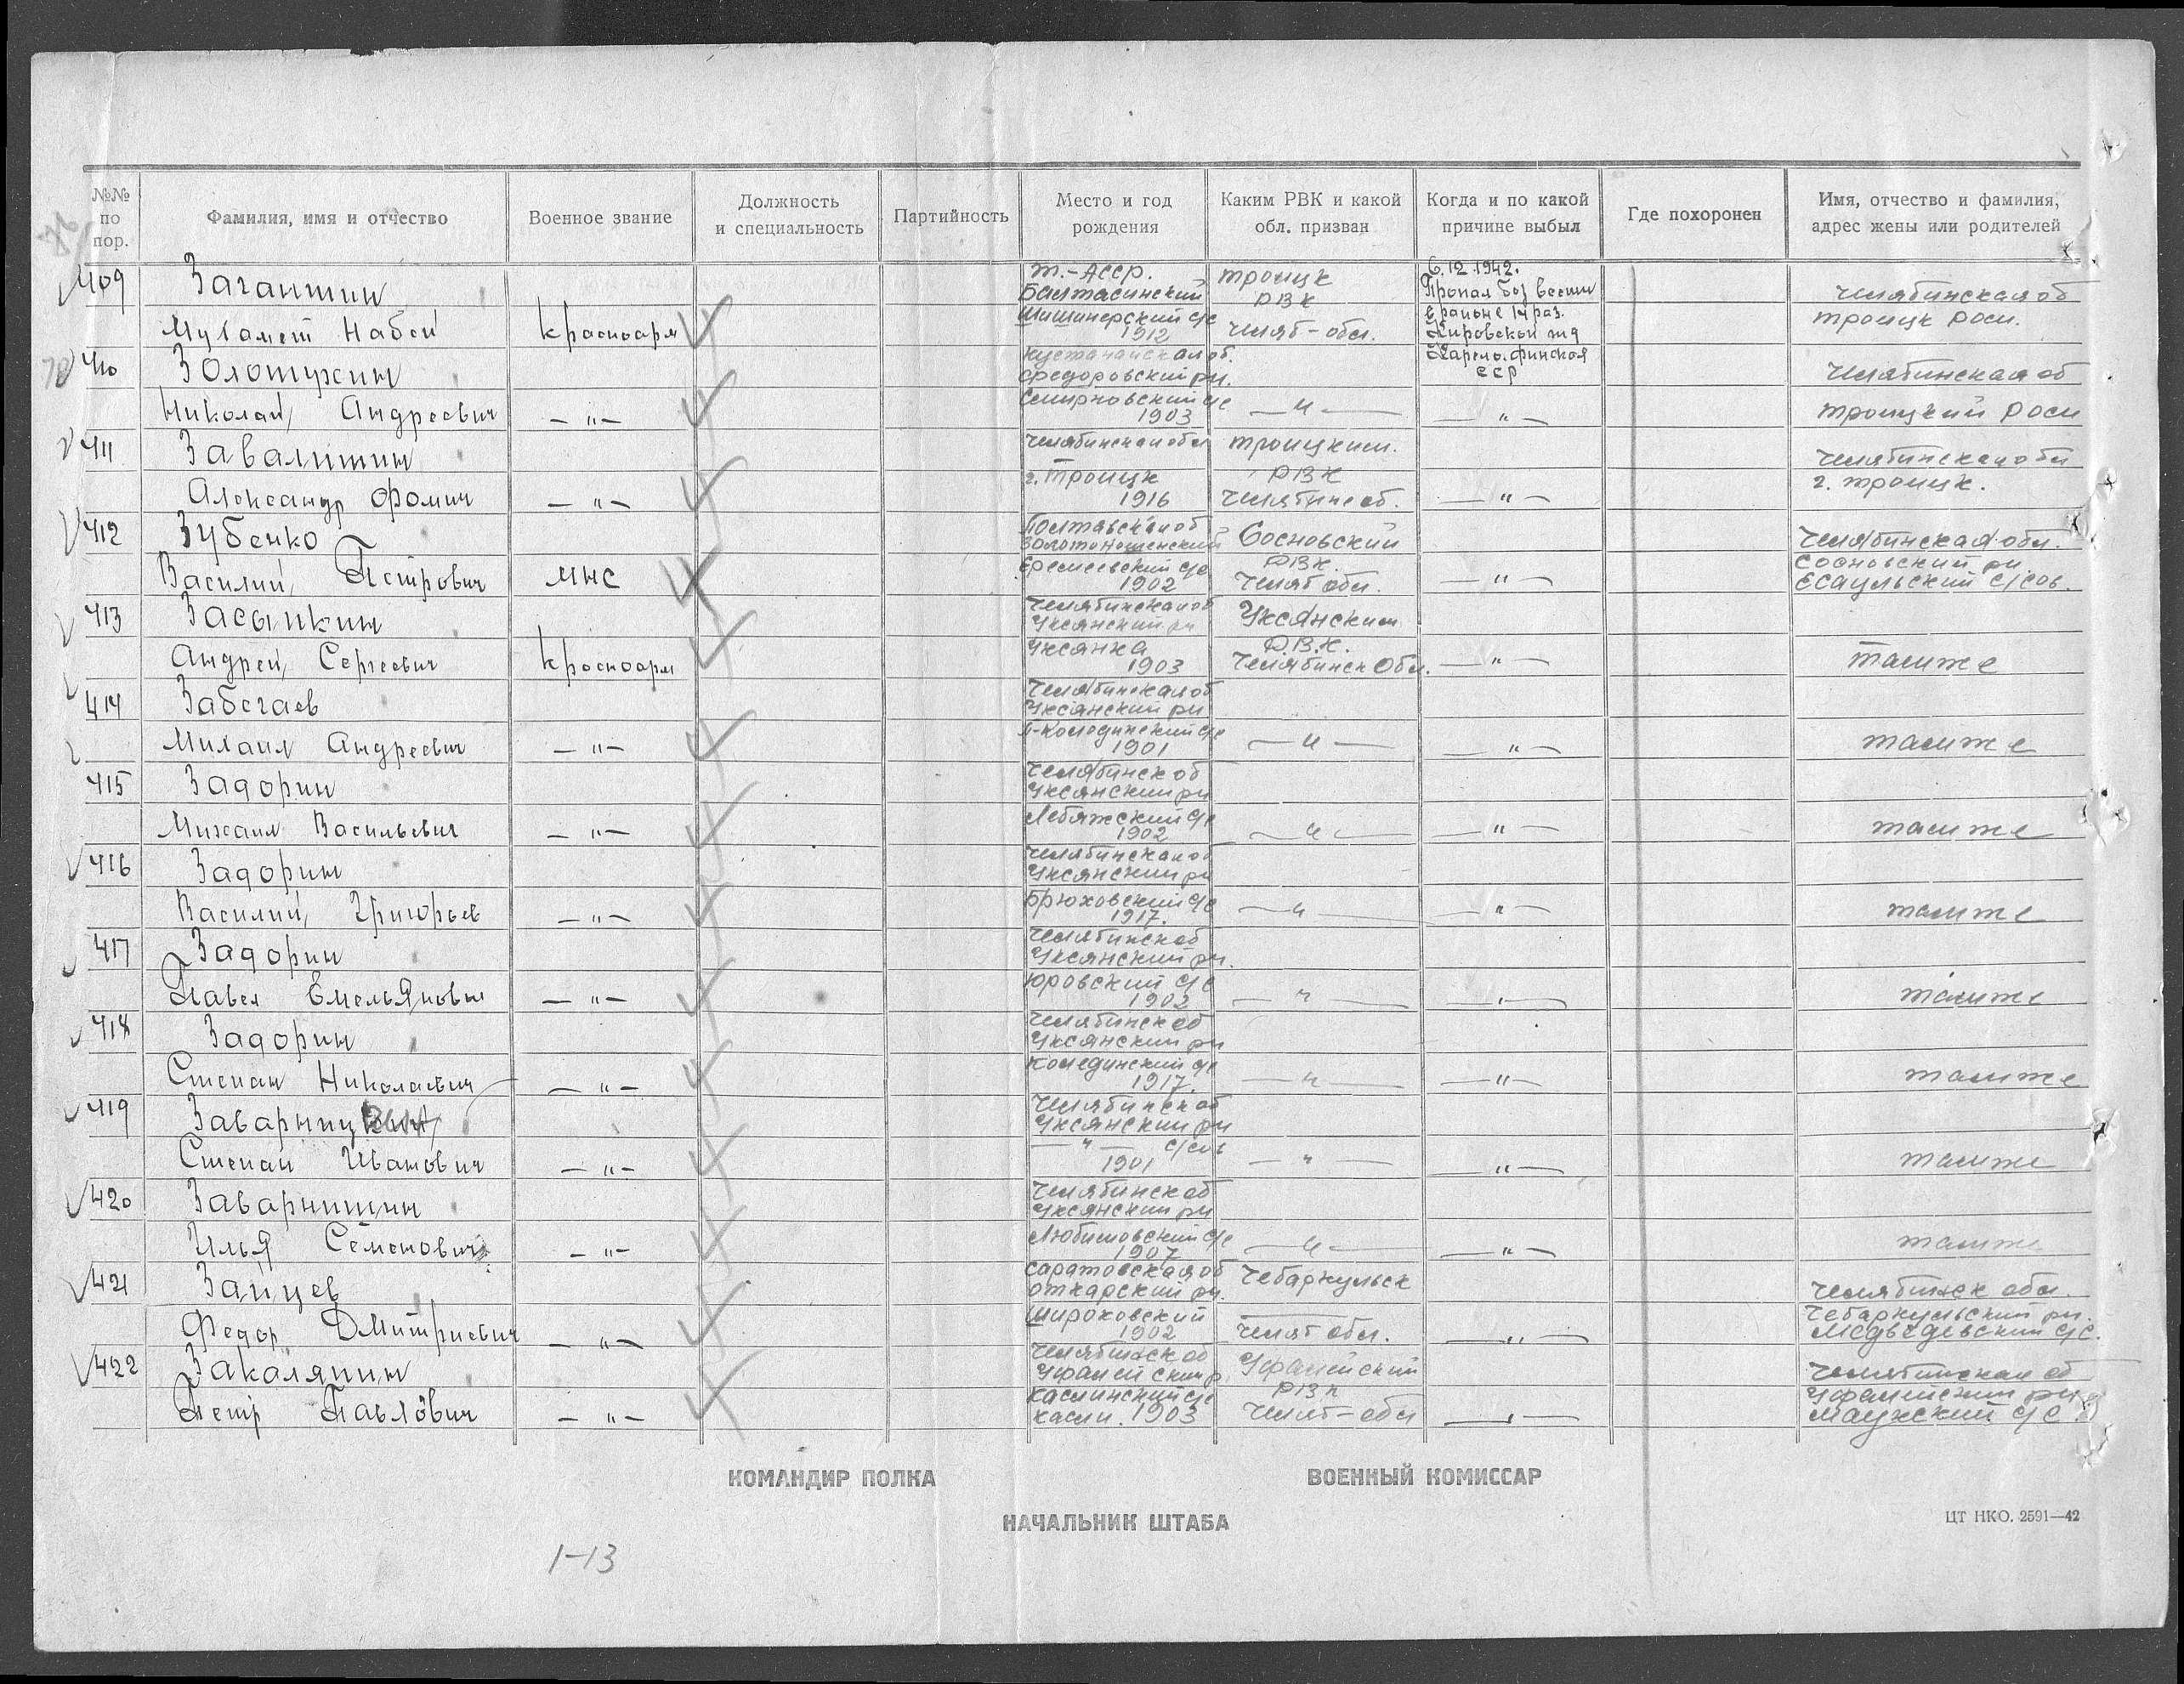 №№ по пор.
Фамилия, имя и отчество
Военное звание
Должность и специальность
Партийность
Место и год рождения
Каким РВК и какой обл. призван
Когда и по какой причине выбыл
Где похоронен
Имя, отчество и фамилия, адрес жены или родителей
409 Загантин т.-Асср. троицк 6.12.1942.
Балтасинский РВК Пропал без вести Челябинская об
Мухамет Набей Красноарм Шишинерский с/с 1912 Челяб-обл. в районе 14 раз. Кировской жд троицк
410 Золотухин Кустанайская об. Карело-финской сср
Федоровский рн. Челябинская об
Николай Андреевич —"— Смирновский с/с 1903 —"— —"— троицкий
411 Завалишин Челябинская обл троицким.
г. Троицк РВК Челябинская обл
Александр Фомич —"— 1916 Челябинс об. —"— г. троицк.
412 Зубенко Полтавская об Сосновский Челябинская обл.
Золотоношенский РВК. Сосновский рн.
Василий Петрович мнс Еремеевский с/с 1902 Челяб обл. —"— Есаульский с/сов.
413 Засыпкин Челябинская об Уксянским
Уксянский рн Р.В.К.
Андрей Сергеевич Красноарм Уксянка 1903 Челябинск Обл. —"— тамже
414 Забегаев Челябинская об
Уксянский рн
Михаил Андреевич —"— 1901 —"— —"— тамже
415 Задорин Челябинск об
Уксянский рн
Михаил Васильевич —"— Лебяжский с/с 1902 —"— —"— тамже
416 Задорин Челябинская об
Уксянский рн
Василий Григорьев —"— Брюховский с/с 1917. —"— —"— тамже
417 Задорин Челябинск об
Уксянский рн.
Павел Емельянович —"— Юровский с/с 1902 —"— —"— тамже
418 Задорин Челябинск об
Уксянский рн
Степан Николаевич —"— Комединский с/с 1917. —"— —"— тамже
419 Челябинск об
Уксянский рн
Степан Иванович —"— —"— с/сов 1901 —"— —"— тамже
420 Заварницин Челябинск об
Уксянский рн
Илья Семенович —"— Любимовский с/с 1907 —"— —"— тамже
421 Зайцев Саратовская об Чебаркульск
откарский рн. Челябинск обл.
Федор Дмитриевич —"— Широковский 1902 Челяб обл. —"— Чебаркульский рн. Медведевский с/с.
422 Закаляпин Челябинск об Уфалейский
Уфалейский р. РВК Челябинская об
Петр Павлович —"— Каслинский с/с Касли. 1903 Челяб-обл —"— Уфалейский рн Маукский с/с
КОМАНДИР ПОЛКА
ВОЕННЫЙ КОМИССАР
НАЧАЛЬНИК ШТАБА
ЦТ НКО. 2591—42
1-13